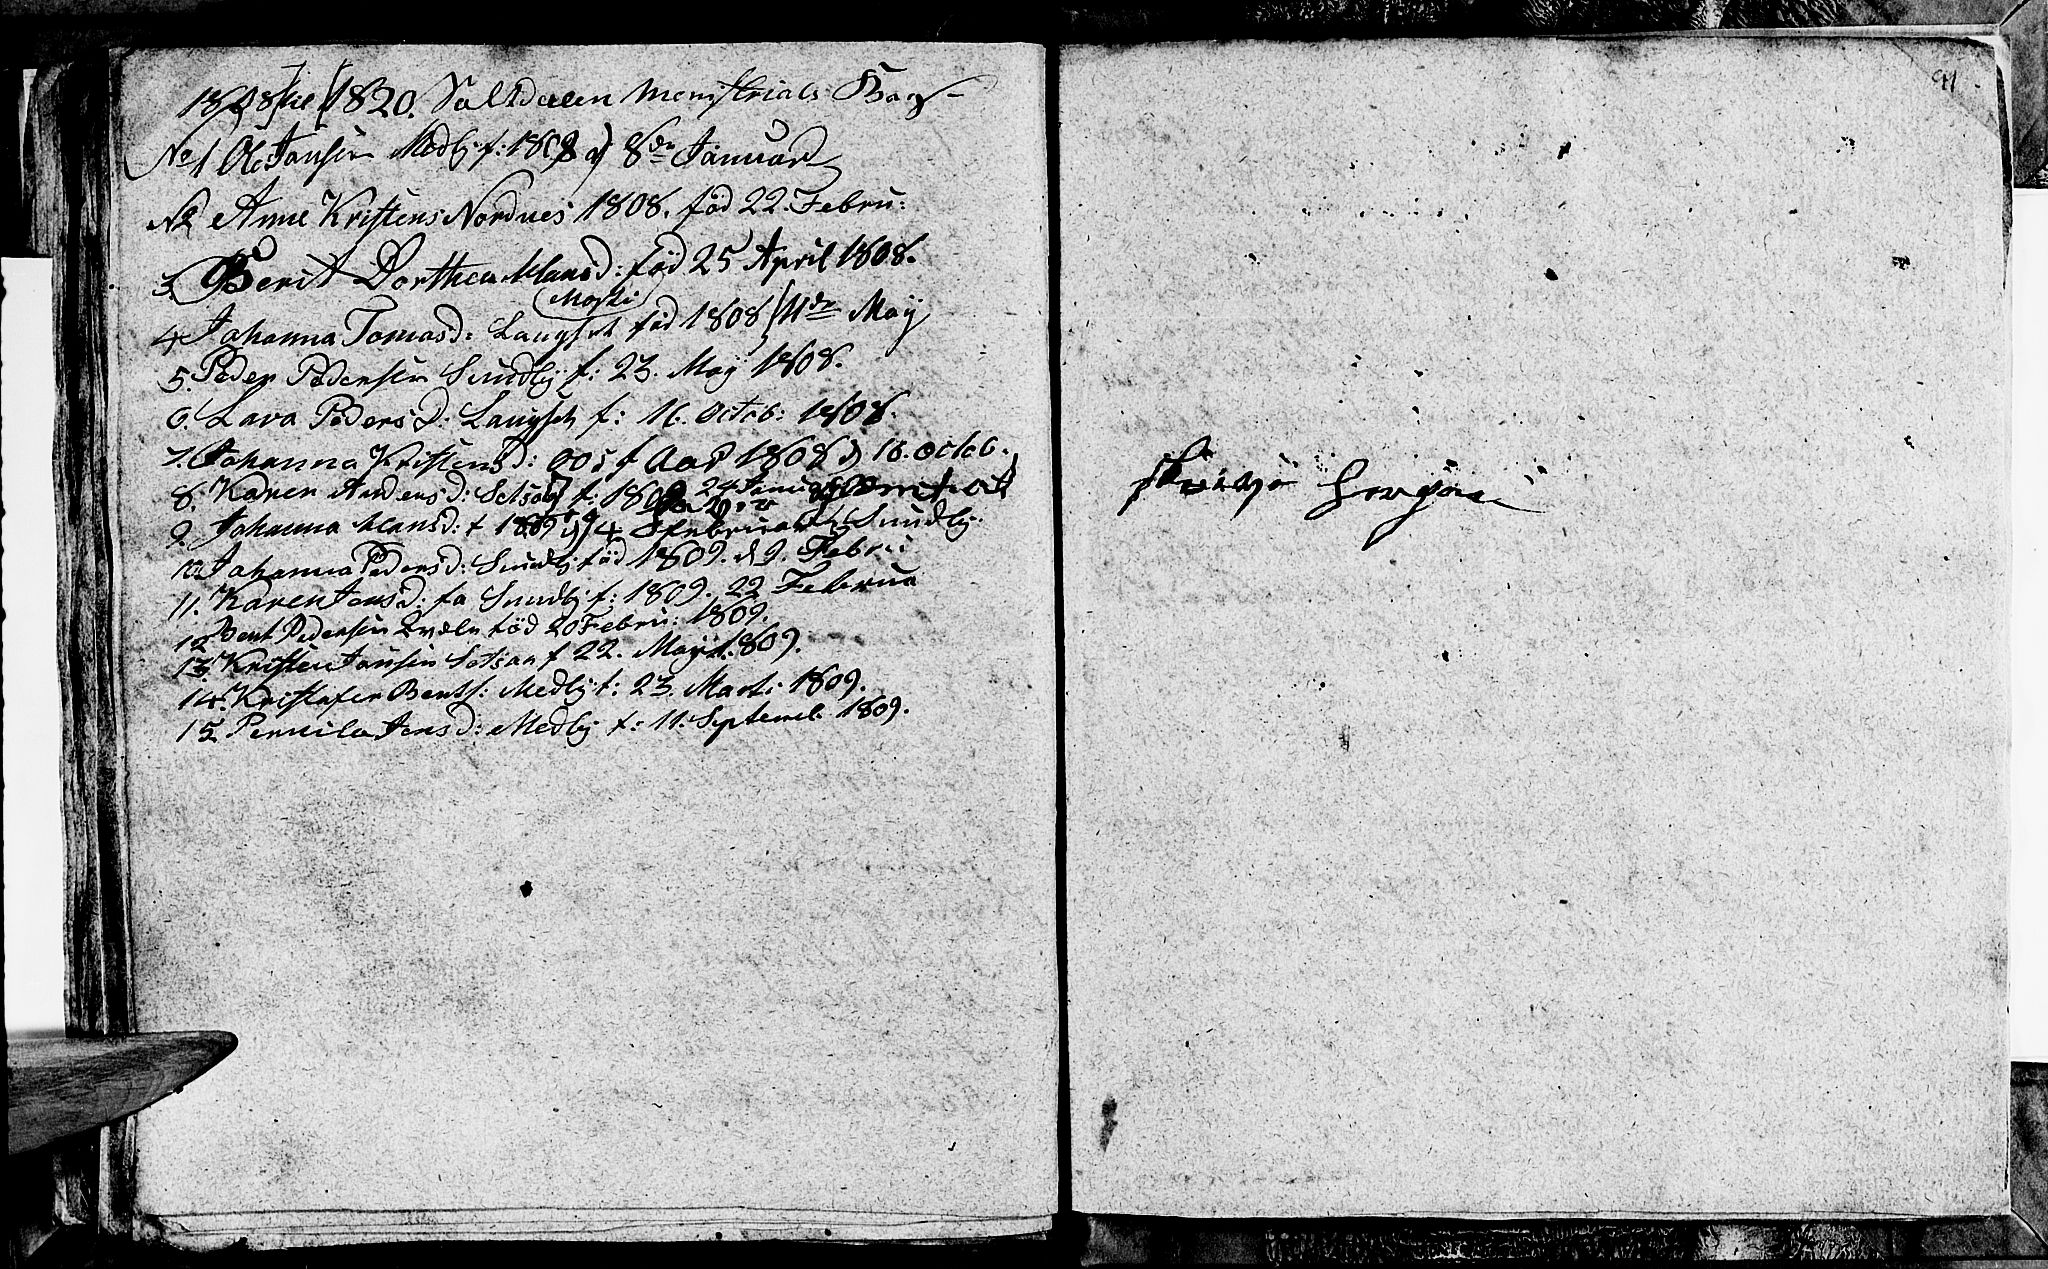 1808 til 1820. Saltdalen Menistrials Bog
No 1 Ole Jansen Medbÿ f: 1808 d 8de Januar
N2 Anne Kristens Nordnes 1808. fød 22. Febru:
3. Berit Dorthea Mansd: fød 25 April 1808.
Moski
4 Johanna Tomasd: Langset fød 1808 11de Maÿ
5. Peder Pedersen Sundbÿ f: 23. Maÿ 1808.
6. Lava Pedersd: Langset f: 16. Octob: 1808.
7. Johanna Kristensd: f Aar 1808 d 18. Octob.
8. Karen Andersd: Setsaa f: 24 Januar
9. Johanna Mansd: f 1809 4 Februar Sundbÿ.
10. Johanna Pedersd: Sundbÿ fød 1809. d 9. Febru
11. Karen Jensd: fa Sundbÿ f: 1809. 22 Februa
12 Bent Pedersen fød 20 Febru: 1809.
13. Kristen Jansen Setsaa f 22. Maÿ 1809.
14. Kristafer Bents: Medbÿ f: 23. Marti 1809.
15 Pernila Jensd: Medbÿ f: 11. Septemb. 1809.
91